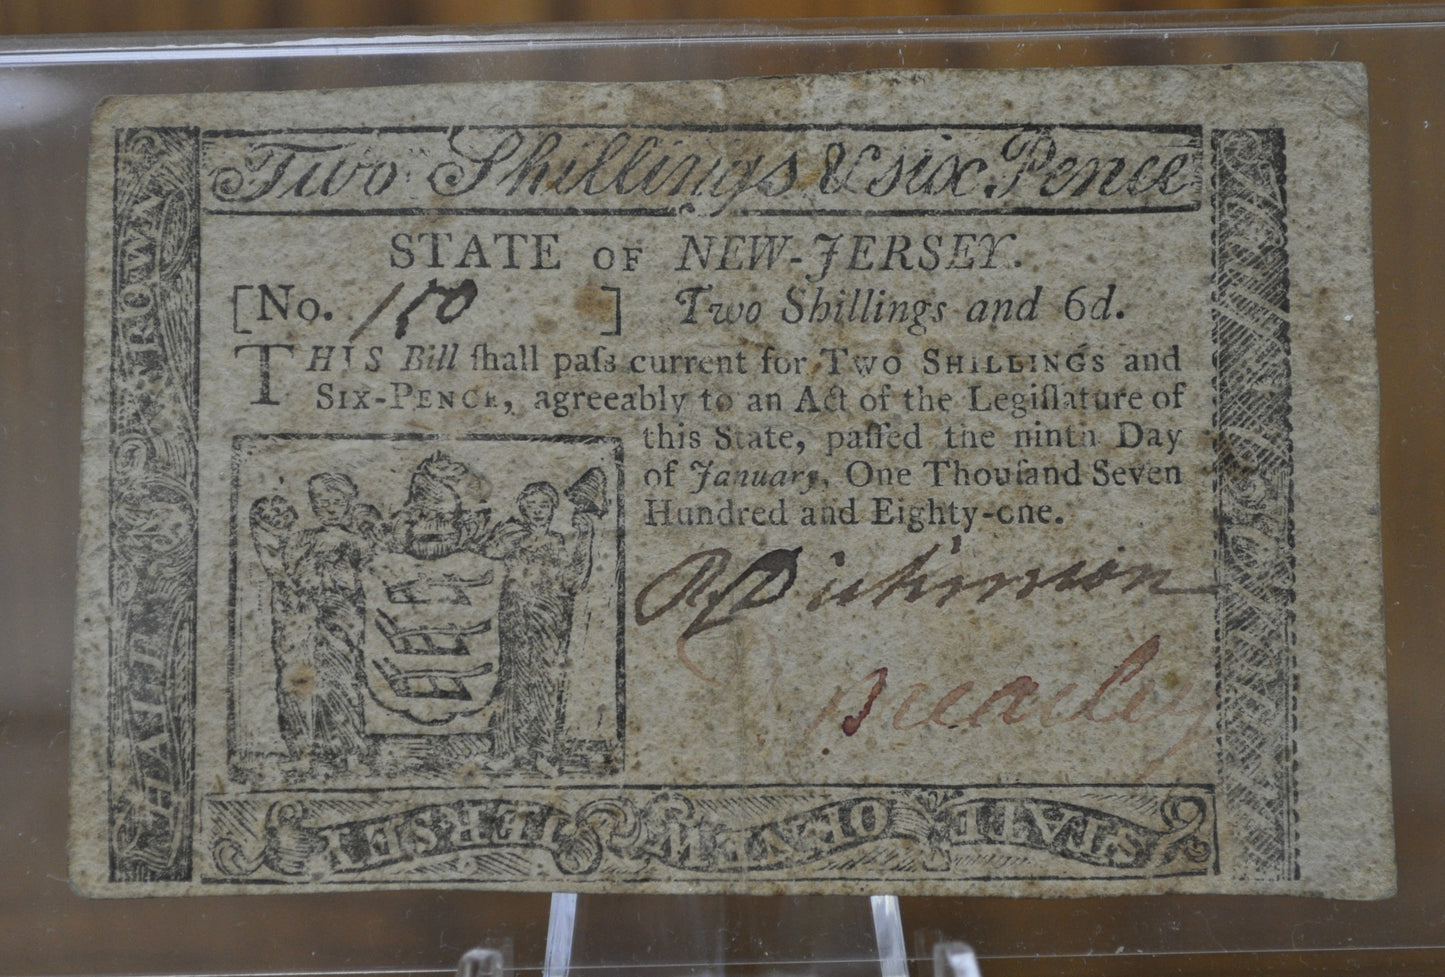 Two Shillings & six Pence
STATE OF NEW-JERSEY.
[No. 150 ] Two Shillings and 6d.
THIS Bill ſhall paſs current for TWO SHILLINGS and
SIX-PENCE, agreeably to an Act of the Legiſlature of
this State, paſſed the ninth Day
of January, One Thouſand Seven
Hundred and Eighty-one.
R Dickinson
Brearley
HALF CROWN
STATE OF NEW JERSEY